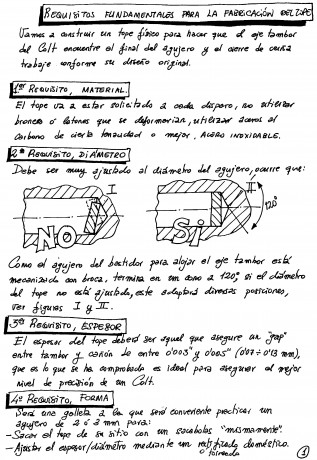 REQUISITOS FUNDAMENTALES PARA LA FABRICACIÓN DEL TOPE
Vamos a construir un tope físico para hacer que el eje tambor
del Colt encuentre el final del agujero y el cierre de cuña
trabaje conforme su diseño original.
1er REQUISITO, MATERIAL.
El tope va a estar solicitado a cada disparo, no utilizar
bronces o latones que se deformarian, utilizar aceros al
carbono de cierta tenacidad o mejor, ACERO INOXIDABLE.
2º REQUISITO, DIÁMETRO
Debe ser muy ajustado al diámetro del agujero, ocurre que:
I
II
NO
SÍ
120º
Como el agujero del bastidor para alojar el eje tambor está
mecanizado con broca, termina en un cono a 120º, si el diámetro
del tope no está ajustado, este adoptará diversas posiciones,
ver figuras I y II.
3er REQUISITO, ESPESOR
El espesor del tope deberá ser aquel que asegure un "gap"
entre tambor y cañón de entre 0'003" y 0'005" (0'07 ÷ 0'13 mm),
que es lo que se ha comprobado es ideal para asegurar el mejor
nivel de precisión de un Colt.
4º REQUISITO, FORMA
Será una galleta a la que será conveniente practicar un
agujero de 2 ó 3 mm para:
- Sacar el tope de su sitio con un sacabolas "mismamente".
- Ajustar el espesor/diámetro mediante un rectificado doméstico.
o torneado
1